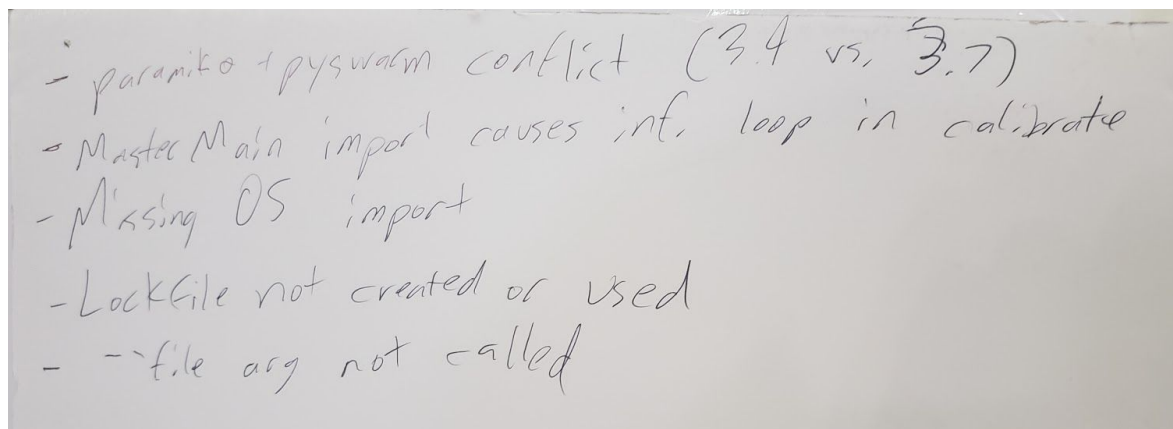 - paramiko + pyswarm conflict (3.4 vs. 3.7)
- MasterMain import causes inf. loop in calibrate
- Missing OS import
- Lockfile not created or used
- --file arg not called